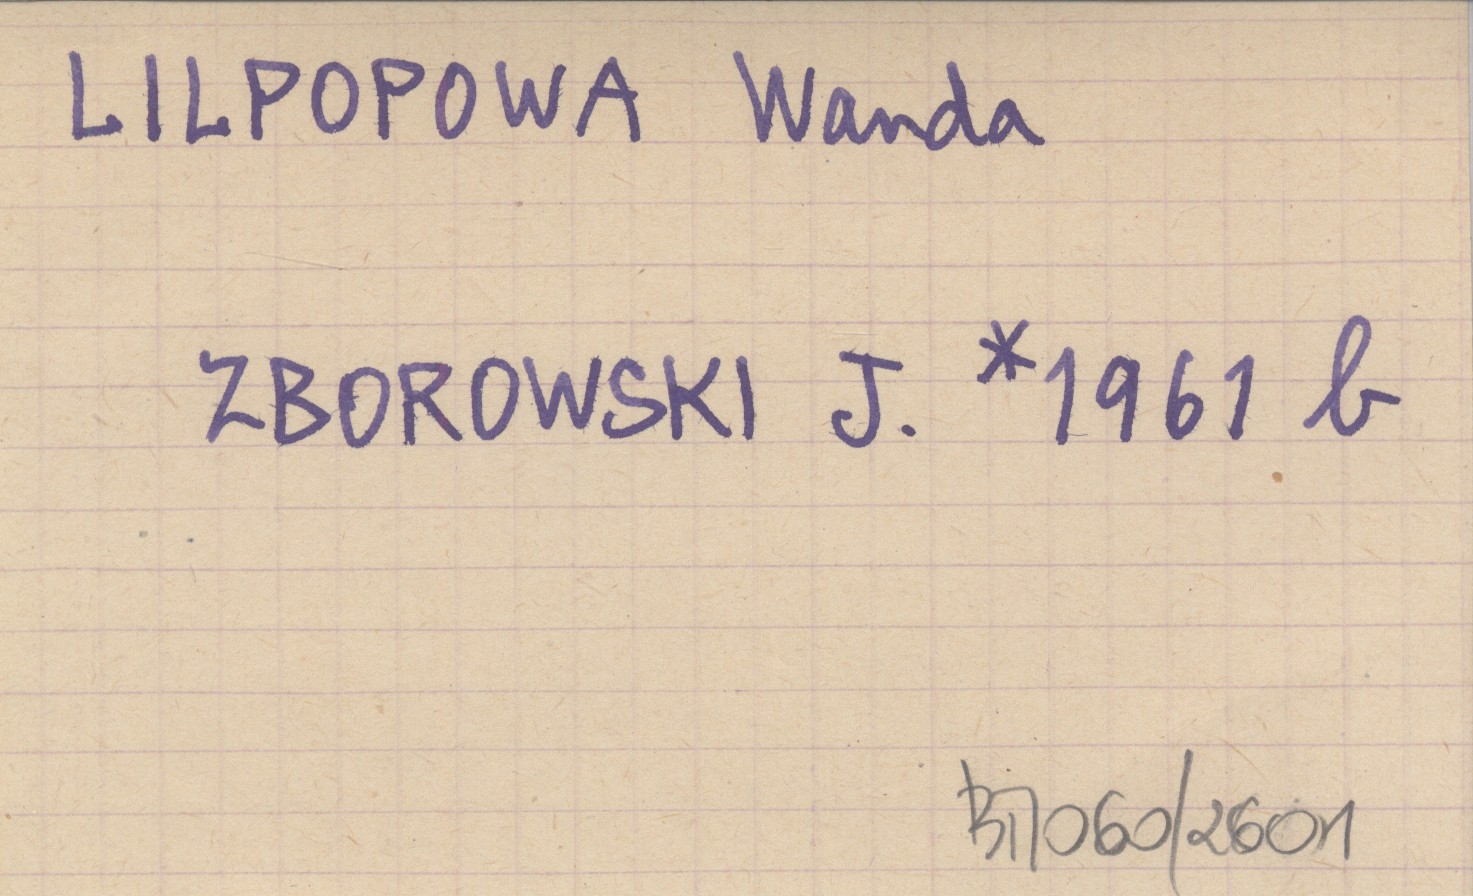 LILPOPOWA Wanda
ZBOROWSKI J. *1961 b
060/2601